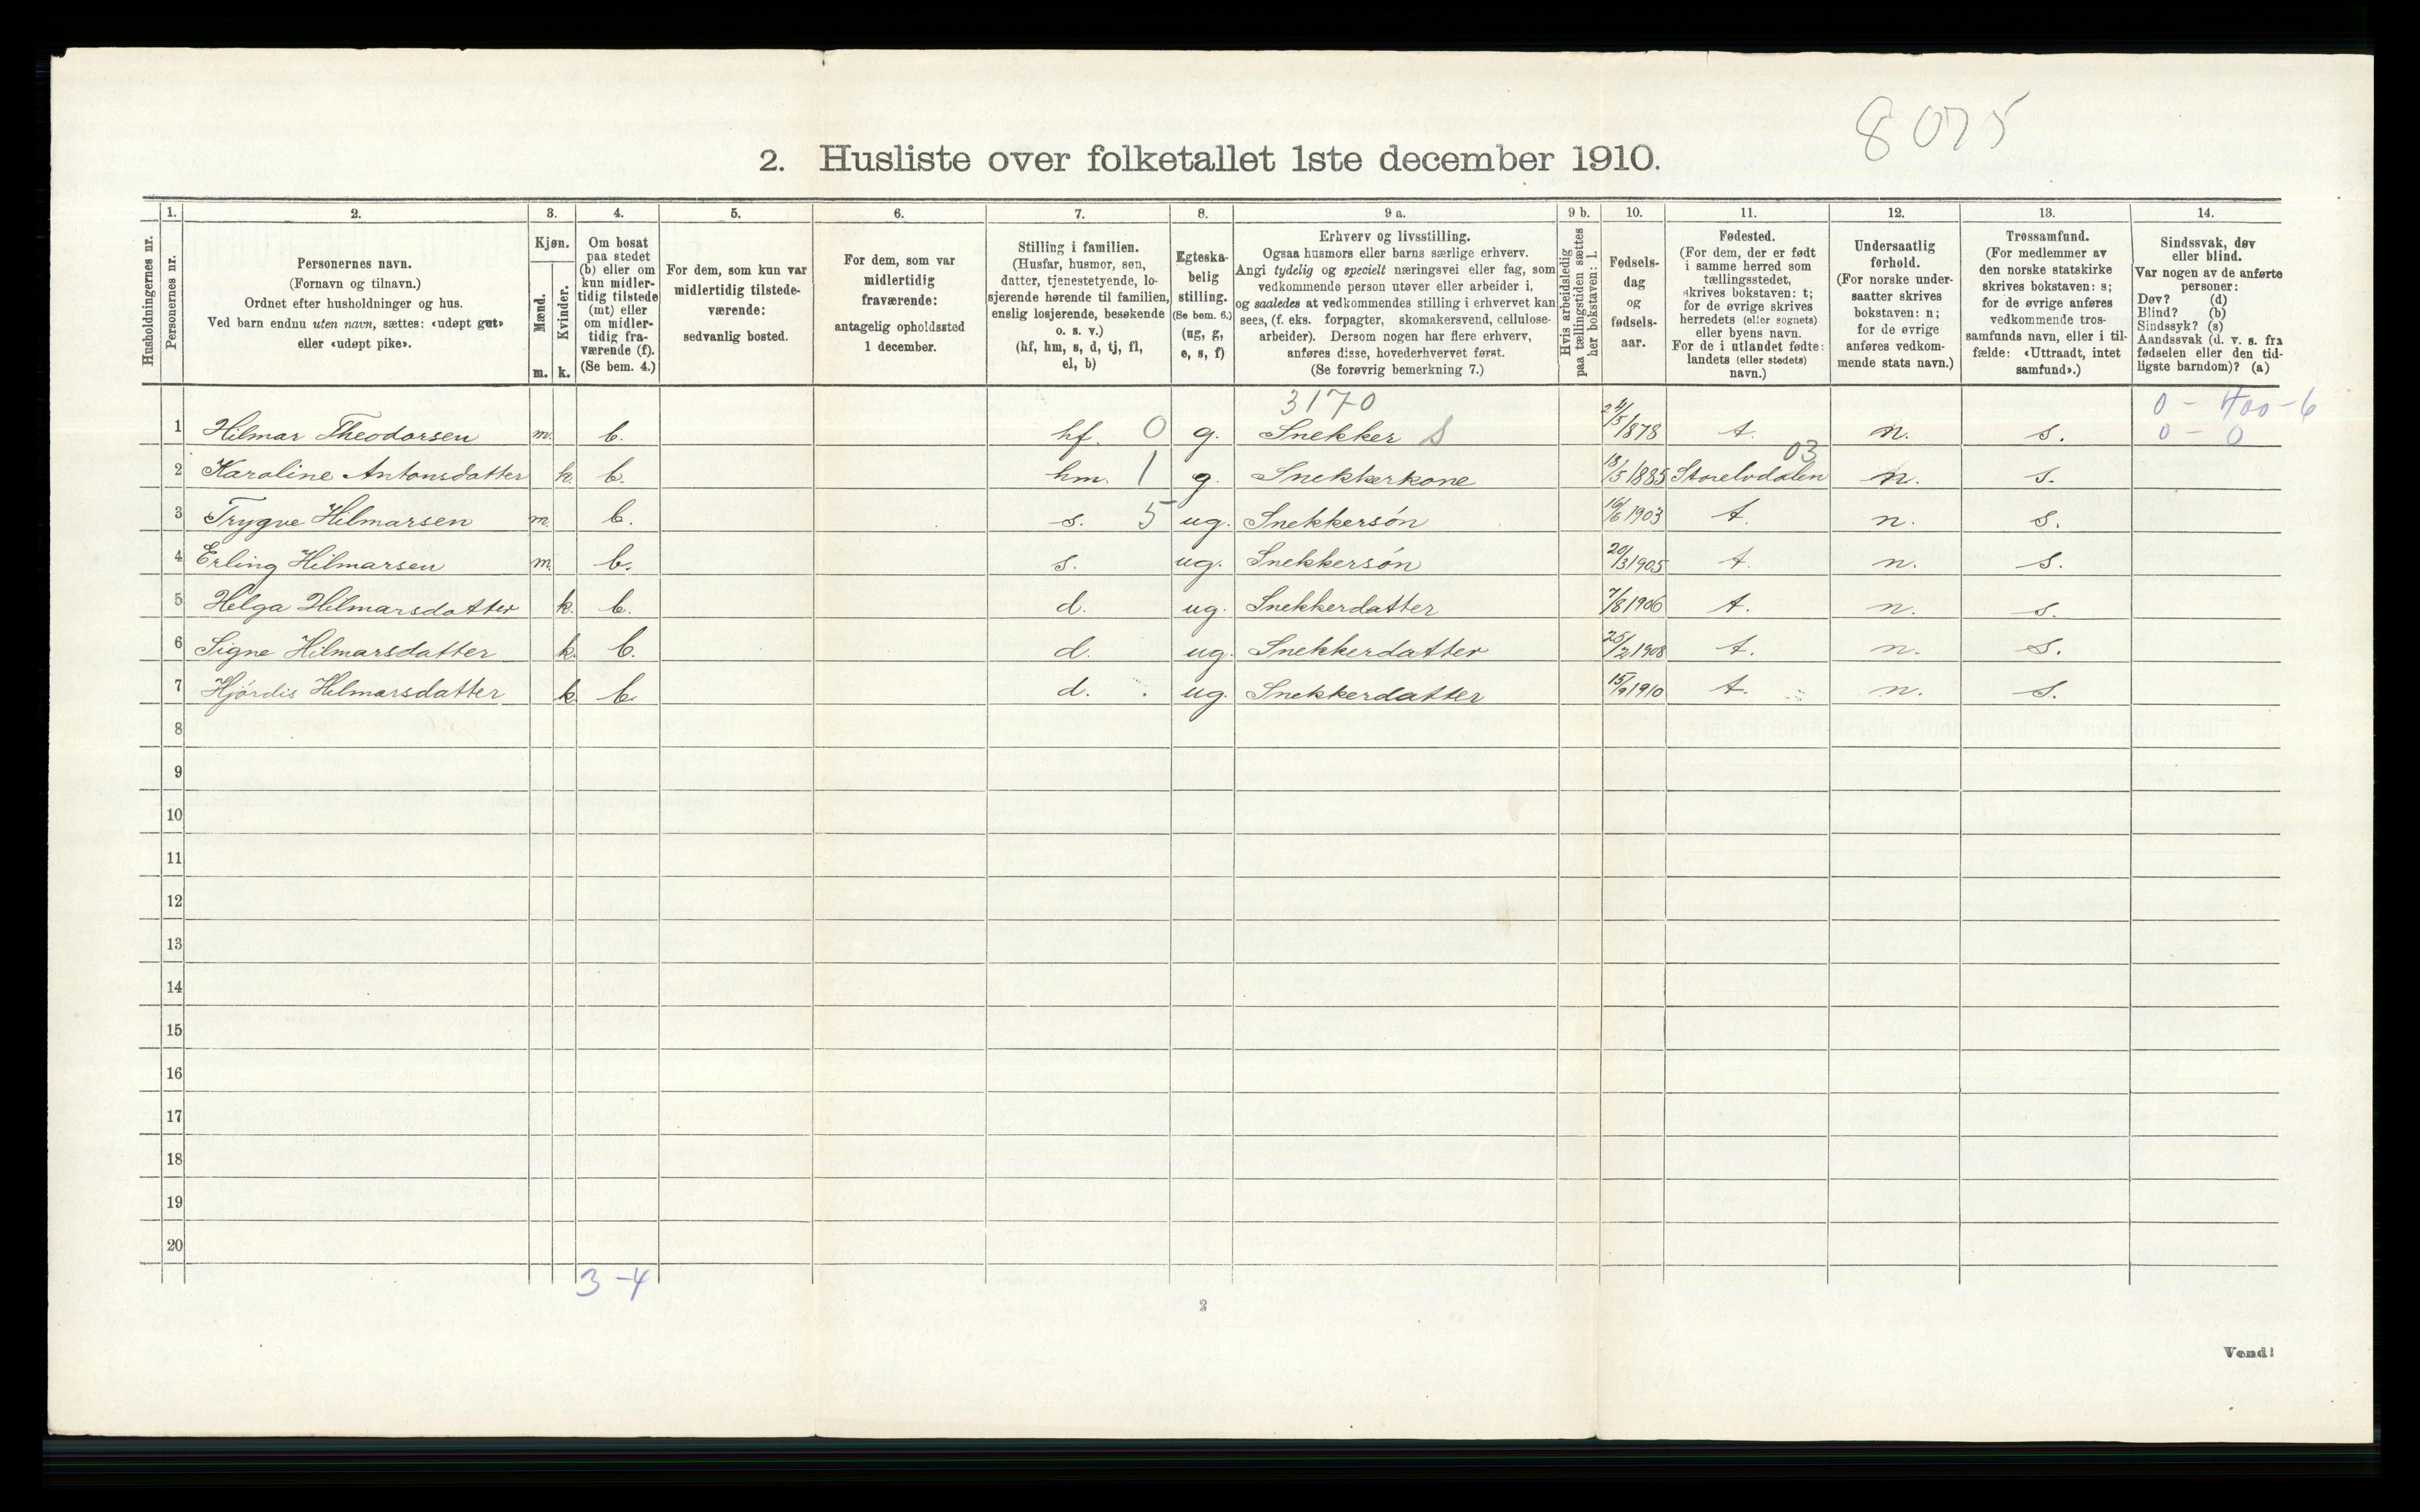 8075
2. Husliste over folketallet 1ste december 1910.
Husholdningernes nr.
1.
Personernes nr.
2.
Personernes navn.
(Fornavn og tilnavn.)
Ordnet efter husholdninger og hus.
Ved barn endnu uten navn, sættes: «udøpt gut»
eller «udøpt pike».
3.
Kjøn.
Mænd.
m.
Kvinder.
k.
4.
Om bosat
paa stedet
(b) eller om
kun midler-
tidig tilstede
(mt) eller
om midler-
tidig fra-
værende (f).
(Se bem. 4.)
5.
For dem, som kun var
midlertidig tilstede-
værende:
sedvanlig bosted.
6.
For dem, som var
midlertidig
fraværende:
antagelig opholdssted
1 december.
7.
Stilling i familien.
(Husfar, husmor, søn,
datter, tjenestetyende, lo-
sjerende hørende til familien,
enslig losjerende, besøkende
o. s. v.)
(hf, hm, s, d, tj, fl,
el, b)
8.
Egteska-
belig
stilling.
(Se bem. 6.)
(ug, g,
e, s, f)
9 a.
Erhverv og livsstilling.
Ogsaa husmors eller barns særlige erhverv.
Angi tydelig og specielt næringsvei eller fag, som
vedkommende person utøver eller arbeider i,
og saaledes at vedkommendes stilling i erhvervet kan
sees, (f. eks. forpagter, skomakersvend, cellulose-
arbeider). Dersom nogen har flere erhverv,
anføres disse, hovederhvervet først.
(Se forøvrig bemerkning 7.)
9 b.
Hvis arbeidsledig
paa tællingstiden sættes
her bokstaven: l.
10.
Fødsels-
dag
og
fødsels-
aar.
11.
Fødested.
(For dem, der er født
i samme herred som
tællingsstedet,
skrives bokstaven: t;
for de øvrige skrives
herredets (eller sognets)
eller byens navn.
For de i utlandet fødte:
landets (eller stedets)
navn.)
12.
Undersaatlig
forhold.
(For norske under-
saatter skrives
bokstaven: n;
for de øvrige
anføres vedkom-
mende stats navn.)
13.
Trossamfund.
(For medlemmer av
den norske statskirke
skrives bokstaven: s;
for de øvrige anføres
vedkommende tros-
samfunds navn, eller i til-
fælde: «Uttraadt, intet
samfund».)
14.
Sindssvak, døv
eller blind.
Var nogen av de anførte
personer:
Døv? (d)
Blind? (b)
Sindssyk? (s)
Aandssvak (d. v. s. fra
fødselen eller den tid-
ligste barndom)? (a)
3170 0 - 400-6
1 Hilmar Theodorsen m. b. hf. 0 g. Snekker S 24/5 1878 t. n. s. 0 - 0
03
2 Karoline Antonsdatter k. b. hm. 1 g. Snekkerkone 18/5 1885 Storelvdalen n. s.
3 Trygve Hilmarsen m. b. s. 5 ug. Snekkersøn 16/6 1903 t. n. s.
4 Erling Hilmarsen m. b. s. ug. Snekkersøn 20/3 1905 t. n. s.
5 Helga Hilmarsdatter k. b. d. ug. Snekkerdatter 7/8 1906 t. n. s.
6 Signe Hilmarsdatter k. b. d. ug. Snekkerdatter 25/2 1908 t. n. s.
7 Hjørdis Hilmarsdatter k. b. d. ug. Snekkerdatter 15/9 1910 t. n. s.
8
9
10
11
12
13
14
15
16
17
18
19
20
3 - 4
2
Vend!